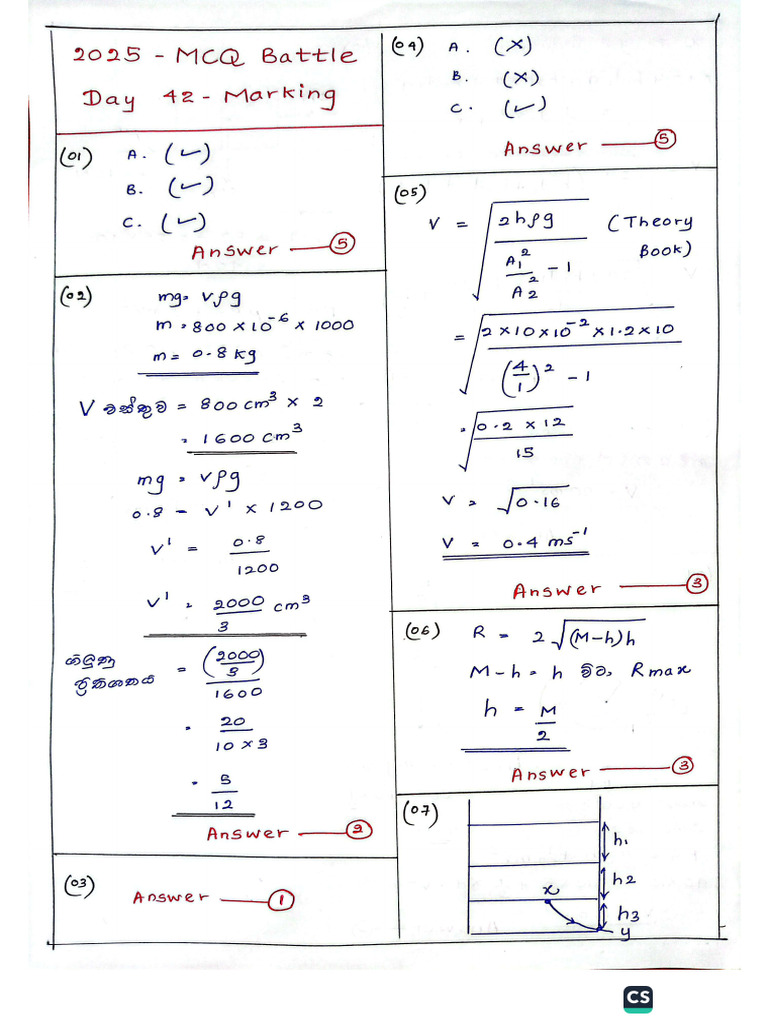 2025 - MCQ Battle
Day 42 - Marking
(01) A. (✓)
B. (✓)
C. (✓)
Answer — 5
(02) mg = Vρg
m = 800 × 10⁻⁶ × 1000
m = 0.8 kg
V වස්තුව = 800 cm³ × 2
= 1600 cm³
mg = Vρg
0.8 = V' × 1200
V' = 0.8/1200
V' = 2000/3 cm³
ගිලුණු ප්‍රතිශතය = (2000/3)/1600
= 20/(10 × 3)
= 5/12
Answer — 2
(03) Answer — 1
(04) A. (×)
B. (×)
C. (✓)
Answer — 5
(05)
V = √(2hρg/(A₁²/A₂² - 1)) (Theory Book)
= √(2×10×10⁻²×1.2×10/((4/1)² - 1))
= √(0.2 × 12/15)
V = √0.16
V = 0.4 ms⁻¹
Answer — 3
(06) R = 2√((M-h)h)
M-h = h විට, Rmax
h = M/2
Answer — 3
(07)
h₁
h2
x
h3
y
CS